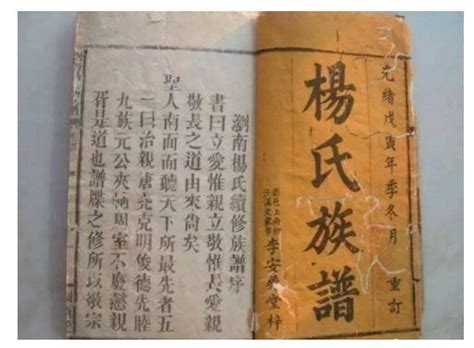 光緒戊寅年季冬月
重訂
楊氏族譜
李安榮堂梓
瀏南楊氏續修族譜序
書曰立愛惟親立敬惟長愛親
敬長之道由來尚矣
聖人南面而聽天下所最先者五
一曰治親唐堯克明俊德先睦
九族元公夾輔周室不廢懿親
胥是道也譜牒之修所以敬宗